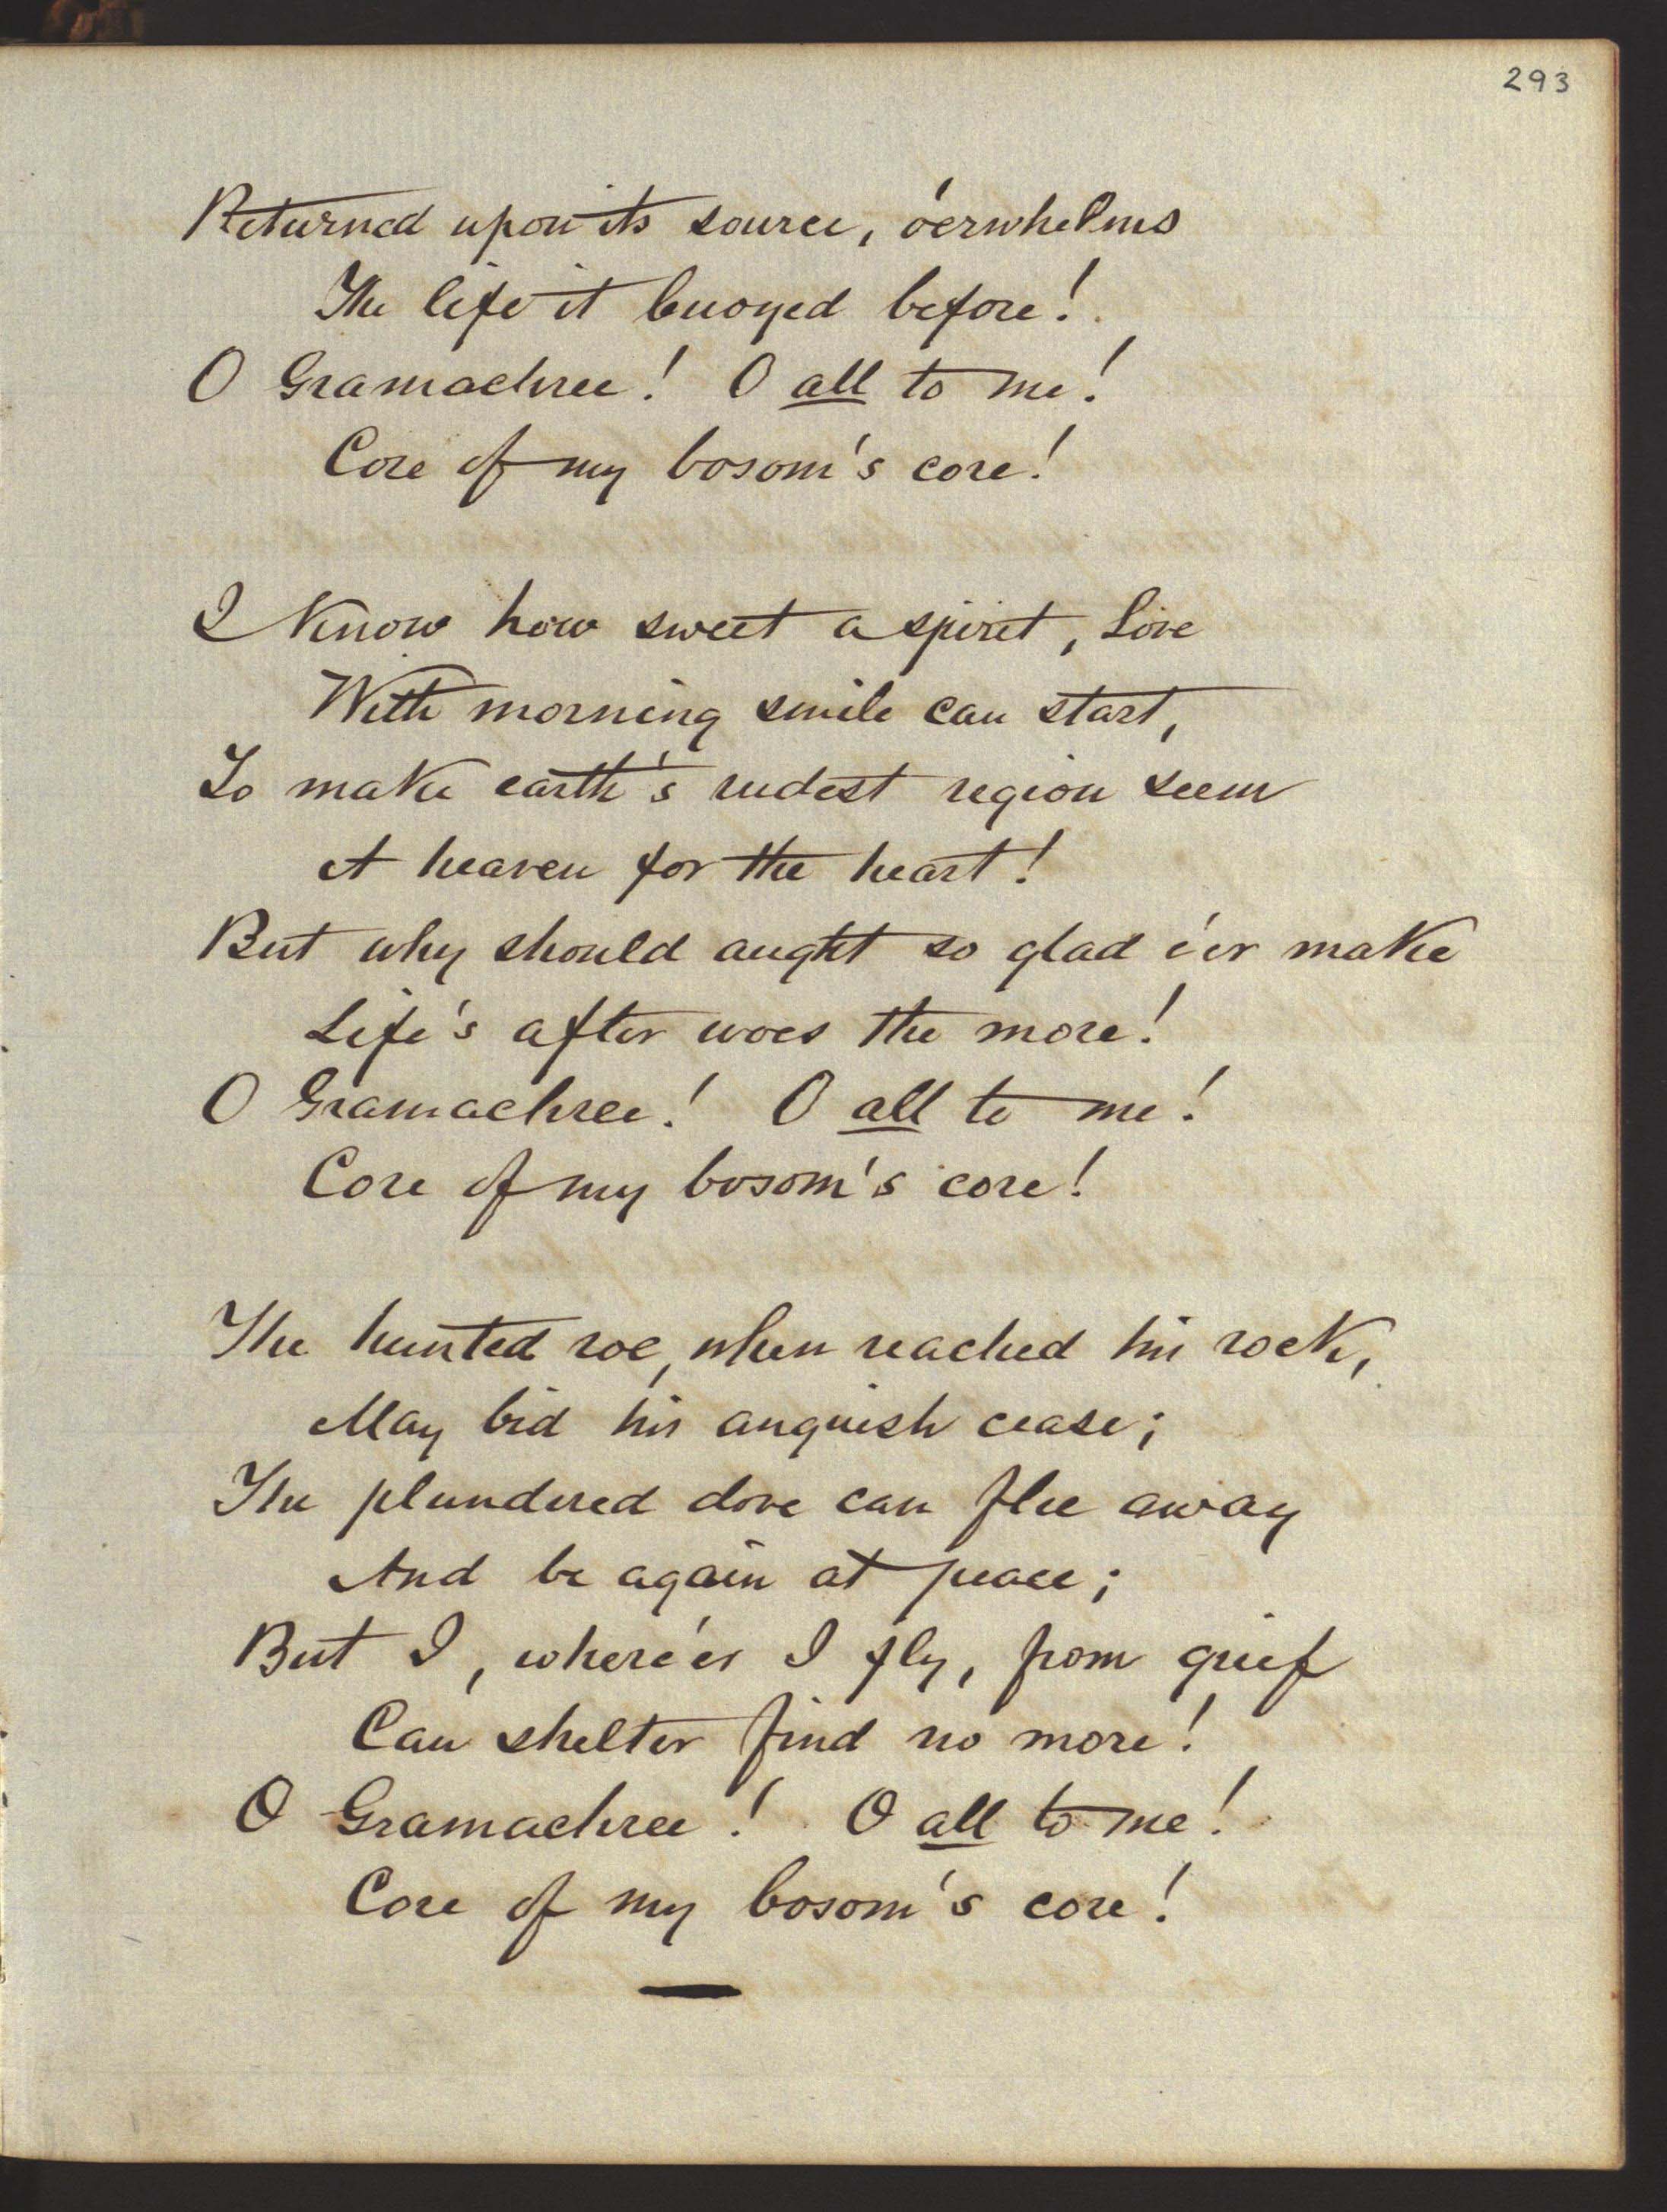 293
Returned upon its source, o'erwhelms
The life it buoyed before!
O Gramachree! O all to me!
Core of my bosom's core!
I know how sweet a spirit, Love
With morning smile can start,
To make earth's rudest region seem
A heaven for the heart!
But why should aught so glad e'er make
Life's after woes the more!
O Gramachree! O all to me!
Core of my bosom's core!
The hunted roe, when reached his rock,
May bid his anguish cease;
The plundered dove can flee away
And be again at peace;
But I, where'er I fly, from grief
Can shelter find no more!
O Gramachree! O all to me!
Core of my bosom's core!